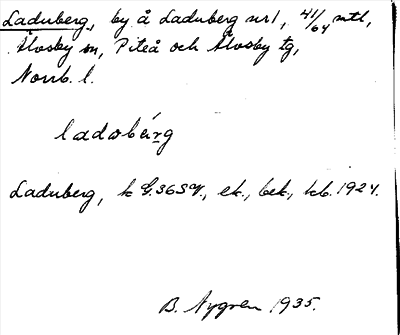 Laduberg, by å Laduberg nr 1, 41/64 mtl,
Älvsby sn, Piteå och Älvsby tg,
Norrb. l.
ladobérg
Laduberg, k G.S6SV., ek., bek., kb. 1924.
B. Nygren 1935.